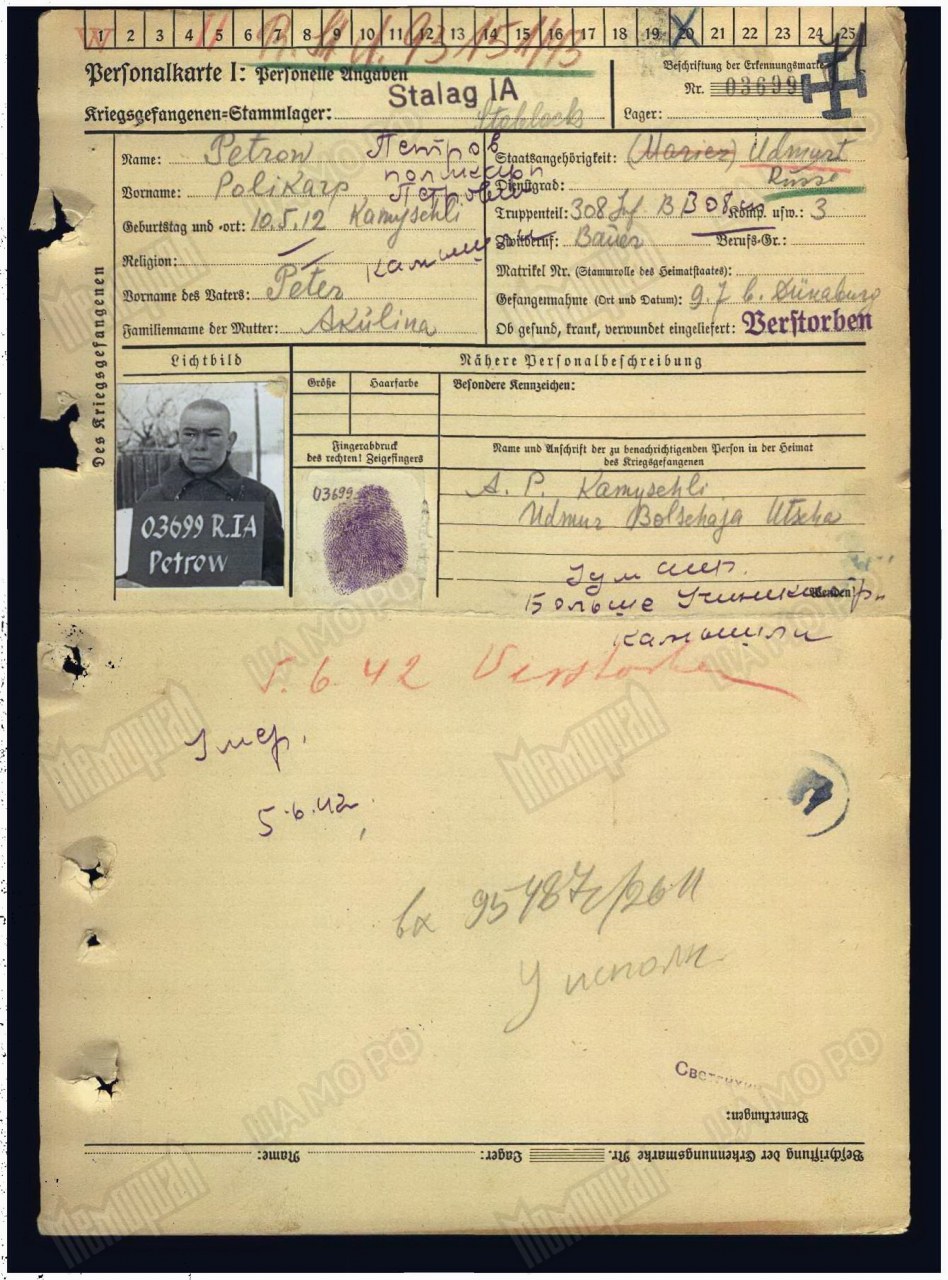 1 2 3 4 5 6 7 8 9 10 11 12 13 14 15 16 17 18 19 20 21 22 23 24 25
Personalkarte I: Personelle Angaben
Beschriftung der Erkennungsmarke
Nr. 03699
Stalag IA
Kriegsgefangenen-Stammlager:
Lager:
Des Kriegsgefangenen
Name: Petrow Петров
Staatsangehörigkeit: Udmurt
Russe
Vorname: Polikarp поликарп
Dienstgrad:
Петрович
Truppenteil: 308 Komp. usw.: 3
Geburtstag und -ort: 10.5.12 Kamyschli
Zivilberuf: Bauer Berufs-Gr.:
Religion:
Matrikel Nr. (Stammrolle des Heimatstaates):
Vorname des Vaters: Peter
Gefangennahme (Ort und Datum): 9.7 b. Dünaburg
Familienname der Mutter: Akulina
Ob gesund, krank, verwundet eingeliefert: Verstorben
Lichtbild
Nähere Personalbeschreibung
Größe Haarfarbe
Besondere Kennzeichen:
Fingerabdruck
des rechten! Zeigefingers
Name und Anschrift der zu benachrichtigenden Person in der Heimat
des Kriegsgefangenen
03699
A. P. Kamyschli
Udmur Bolschaja Utscha
03699 R.IA
Petrow
5.6.42 Verstorben
Умер.
5.6.42
вх 95487с/26 11
У исполн.
Bemerkungen:
Beschriftung der Erkennungsmarke Nr. Lager: Name:
Мемориал
ЦАМО РФ